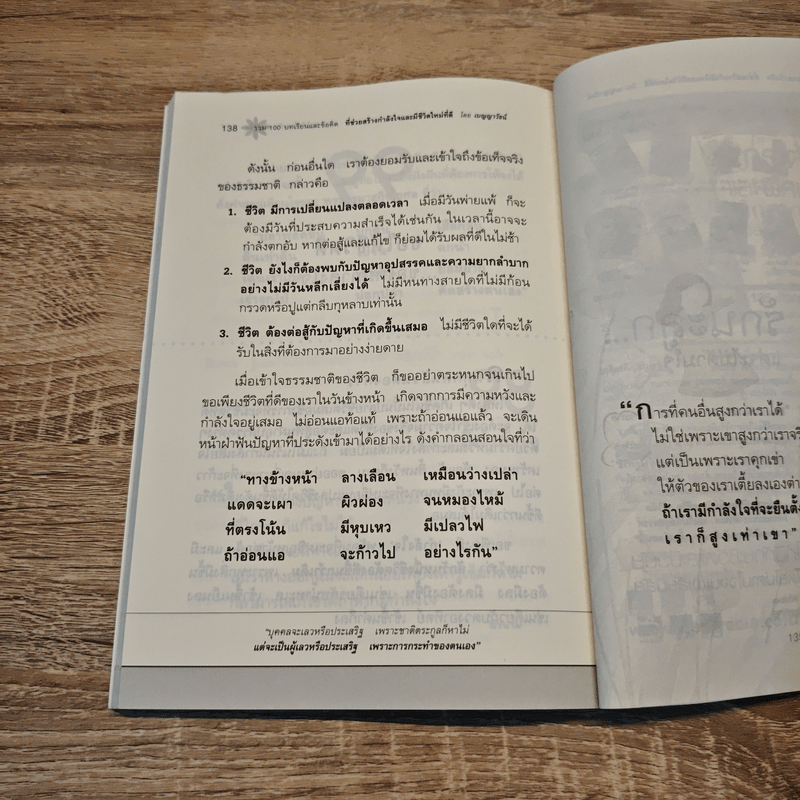 138 รวม 100 บทเรียนและข้อคิด ที่ช่วยสร้างกำลังใจและมีชีวิตใหม่ที่ดี โดย เบญญาวัธน์
ดังนั้น ก่อนอื่นใด เราต้องยอมรับและเข้าใจถึงข้อเท็จจริง
ของธรรมชาติ กล่าวคือ
1. ชีวิต มีการเปลี่ยนแปลงตลอดเวลา เมื่อมีวันพ่ายแพ้ ก็จะ
ต้องมีวันที่ประสบความสำเร็จได้เช่นกัน ในเวลานี้อาจจะ
กำลังตกอับ หากต่อสู้และแก้ไข ก็ย่อมได้รับผลที่ดีในไม่ช้า
2. ชีวิต ยังไงก็ต้องพบกับปัญหาอุปสรรคและความยากลำบาก
อย่างไม่มีวันหลีกเลี่ยงได้ ไม่มีหนทางสายใดที่ไม่มีก้อน
กรวดหรือปูแต่กลีบกุหลาบเท่านั้น
3. ชีวิต ต้องต่อสู้กับปัญหาที่เกิดขึ้นเสมอ ไม่มีชีวิตใดที่จะได้
รับในสิ่งที่ต้องการมาอย่างง่ายดาย
เมื่อเข้าใจธรรมชาติของชีวิต ก็ขออย่าตระหนกจนเกินไป
ขอเพียงชีวิตที่ดีของเราในวันข้างหน้า เกิดจากการมีความหวังและ
กำลังใจอยู่เสมอ ไม่อ่อนแอท้อแท้ เพราะถ้าอ่อนแอแล้ว จะเดิน
หน้าฝ่าฟันปัญหาที่ประดังเข้ามาได้อย่างไร ดังคำกลอนสอนใจที่ว่า
"ทางข้างหน้า ลางเลือน เหมือนว่างเปล่า
แดดจะเผา ผิวผ่อง จนหมองไหม้
ที่ตรงโน้น มีหุบเหว มีเปลวไฟ
ถ้าอ่อนแอ จะก้าวไป อย่างไรกัน"
"บุคคลจะเลวหรือประเสริฐ เพราะชาติตระกูลก็หาไม่
แต่จะเป็นผู้เลวหรือประเสริฐ เพราะการกระทำของตนเอง"
"การที่คนอื่นสูงกว่าเราได้
ไม่ใช่เพราะเขาสูงกว่าเราจริ
แต่เป็นเพราะเราคุกเข่า
ให้ตัวของเราเตี้ยลงเองต่า
ถ้าเรามีกำลังใจที่จะยืนตั้ง
เราก็สูงเท่าเขา"